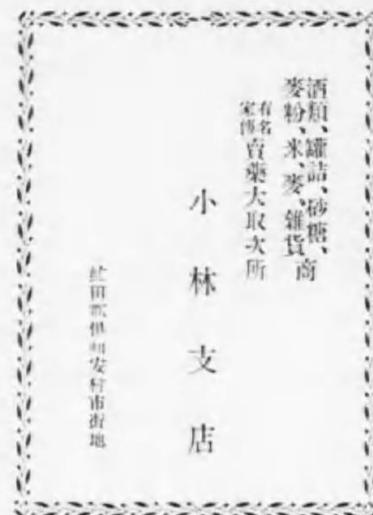 酒類、罐詰、砂糖、
麥粉、米、麥、雜貨商
有名
家傳
賣藥大取次所
小林支店
虻田郡倶知安村市街地